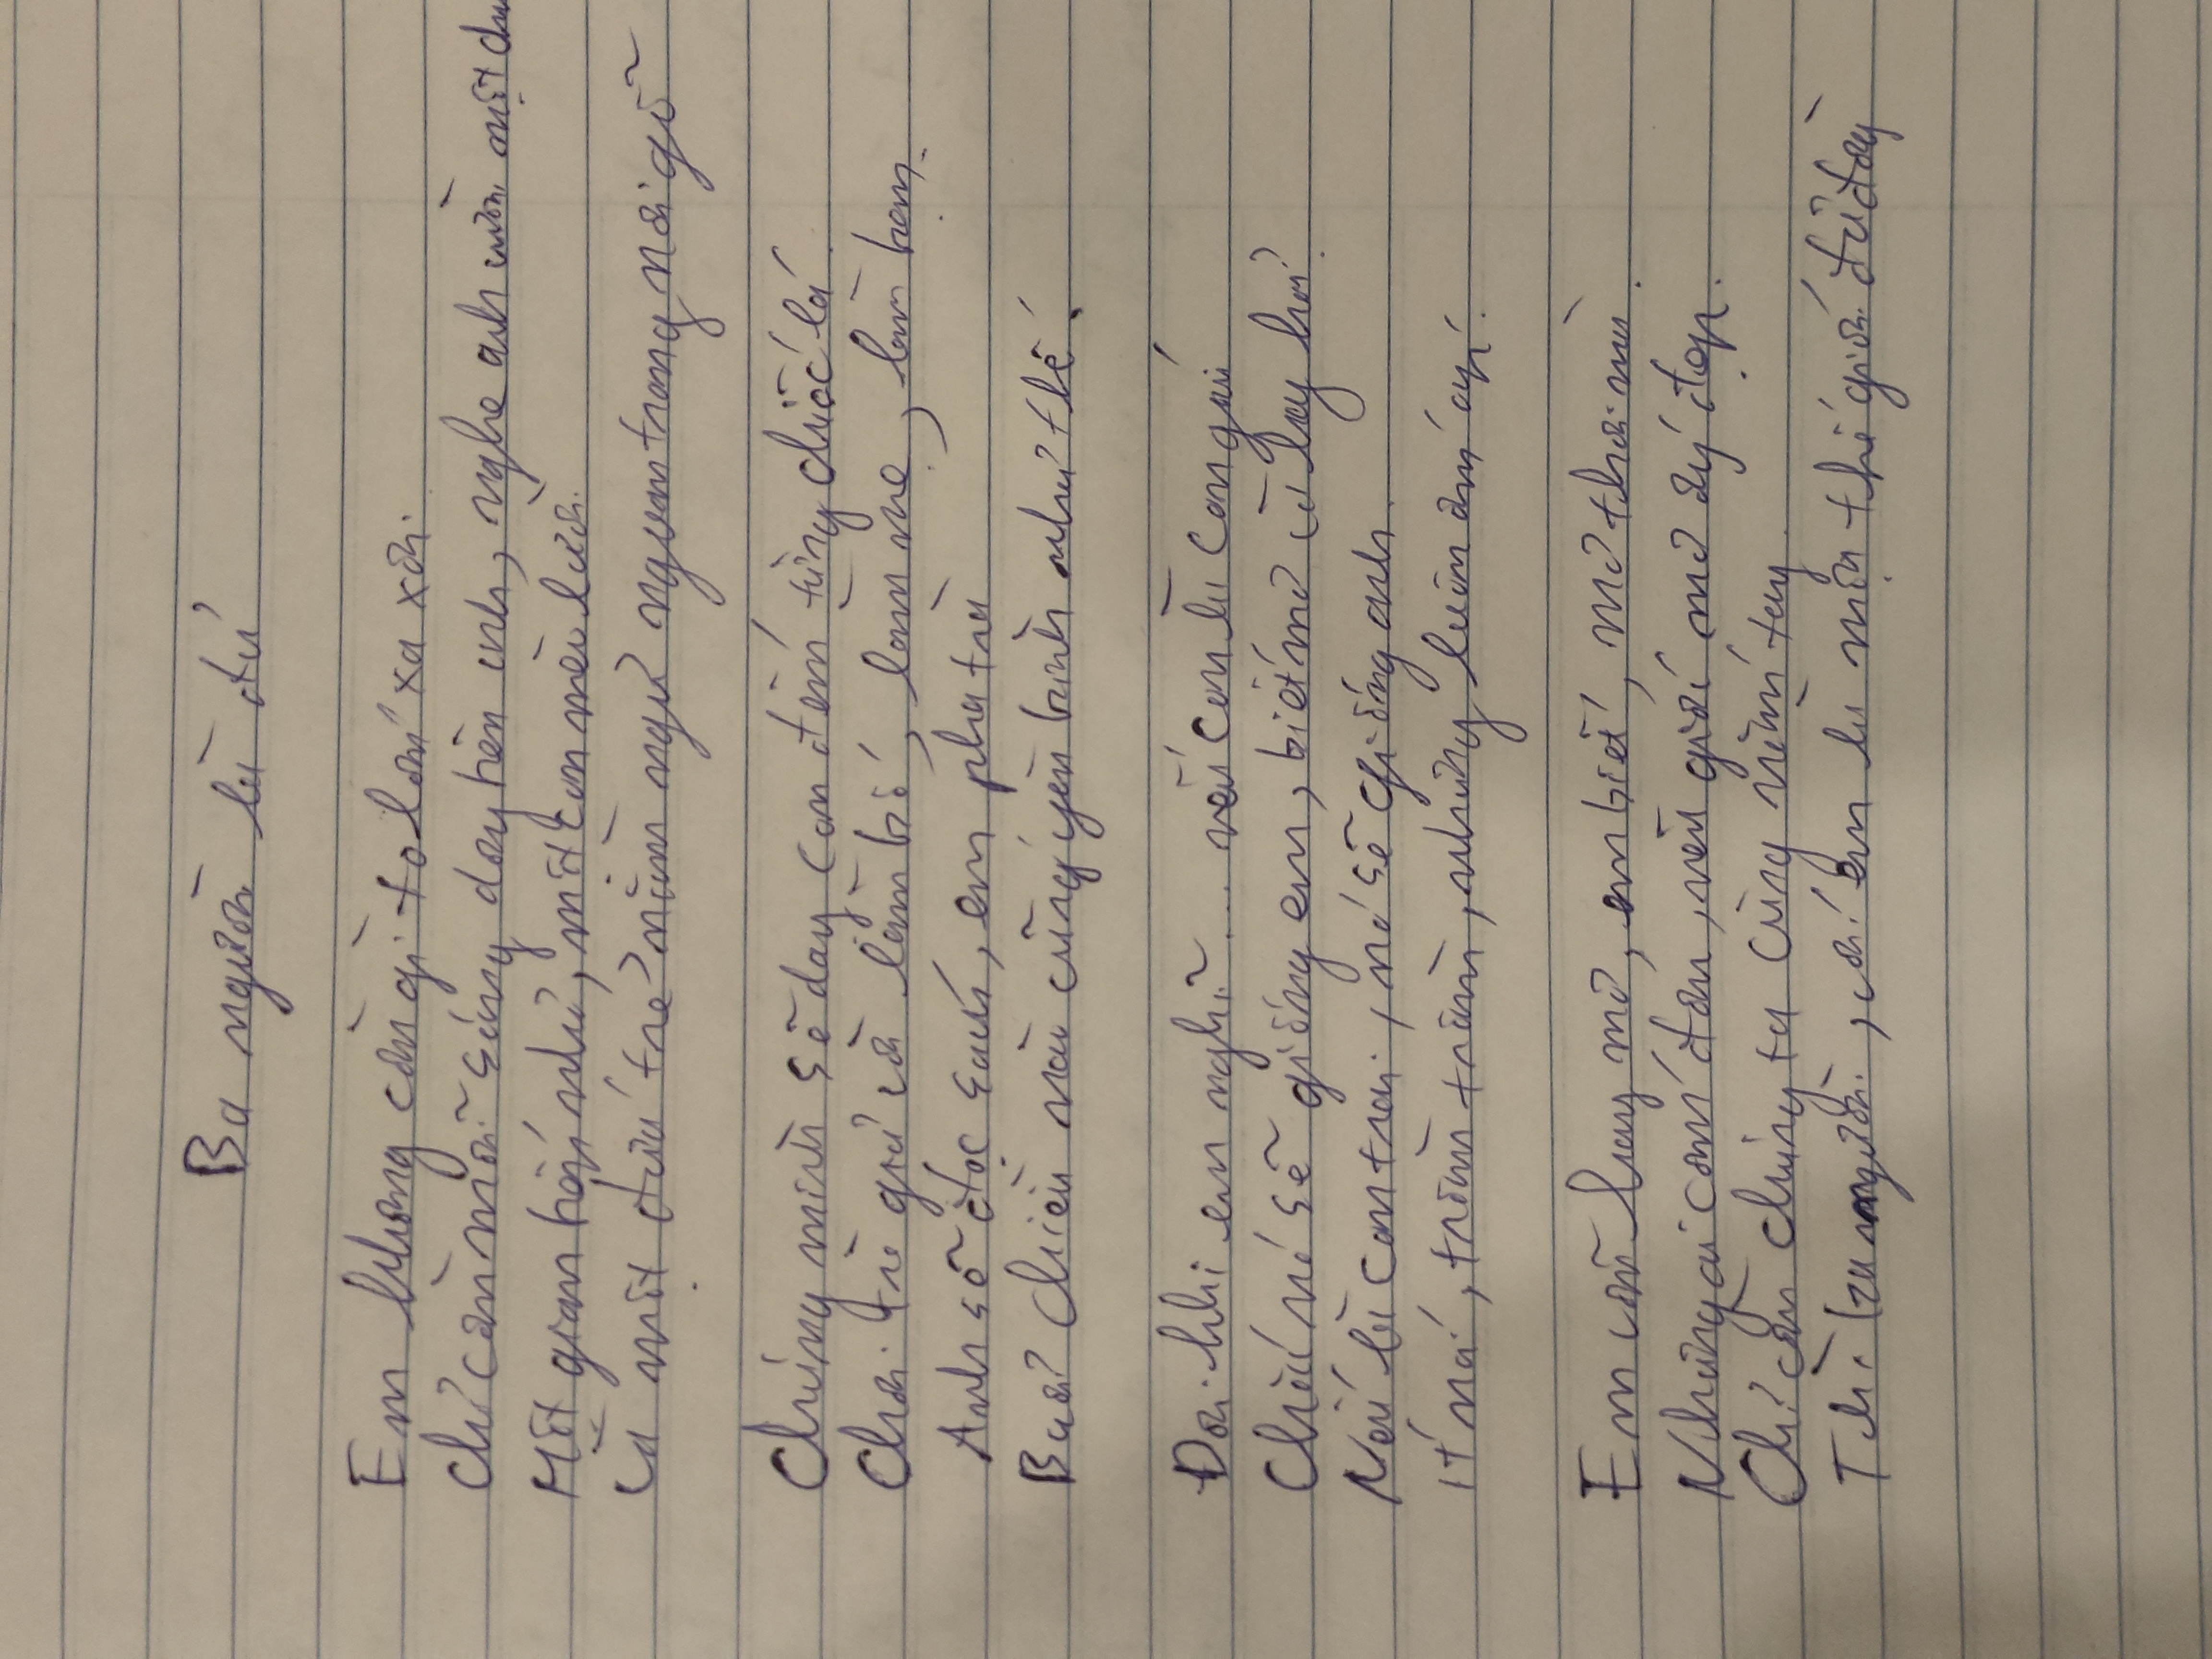 Ba người là đủ
Em không cần gì to lớn xa xôi.
Chỉ cần mỗi sáng dậy bên anh, nghe anh cười một
Một gian bếp nhỏ, một con mèo lười.
Và một đứa trẻ nằm ngủ ngoan trong nôi gỗ
Chúng mình sẽ dạy con đếm từng chiếc lá.
Chơi trò giả vờ làm bố, làm mẹ, làm bạn.
Anh sẽ đọc sách, em pha trà
Buổi chiều nào cũng yên bình như thế.
Đôi khi em nghĩ... nếu con là con gái
Chắc nó sẽ giống em, biết mơ và hay hỏi.
Nếu là con trai, nó sẽ giống anh.
Ít nói, trầm trầm, nhưng luôn ấm áp.
Em vẫn hay mơ, em biết, mơ thôi mà.
Nhưng ai cấm đâu, nếu giấc mơ ấy đẹp.
Chỉ cần chúng ta cùng nắm tay.
Thì ba người, với em là một thế giới đủ đầy